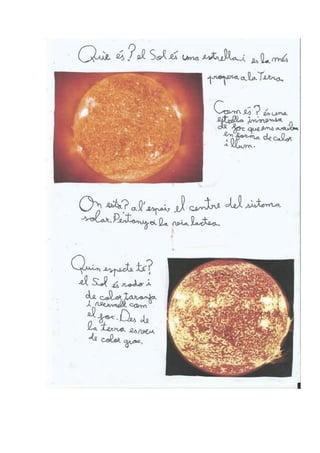 Què és? el Sol és una estrella i es la més
propera a la Terra.
Com és? és una
estrella inmensa
de foc que ens arriba
en forma de calor
i llum.
On està? a l'espai, el centre del sistema
solar. Pertany a la via lactea.
Quin aspecte té?
el Sol és rodó i
de color taronja
i vermell com
el foc. Des de
la terra es veu
de color groc.